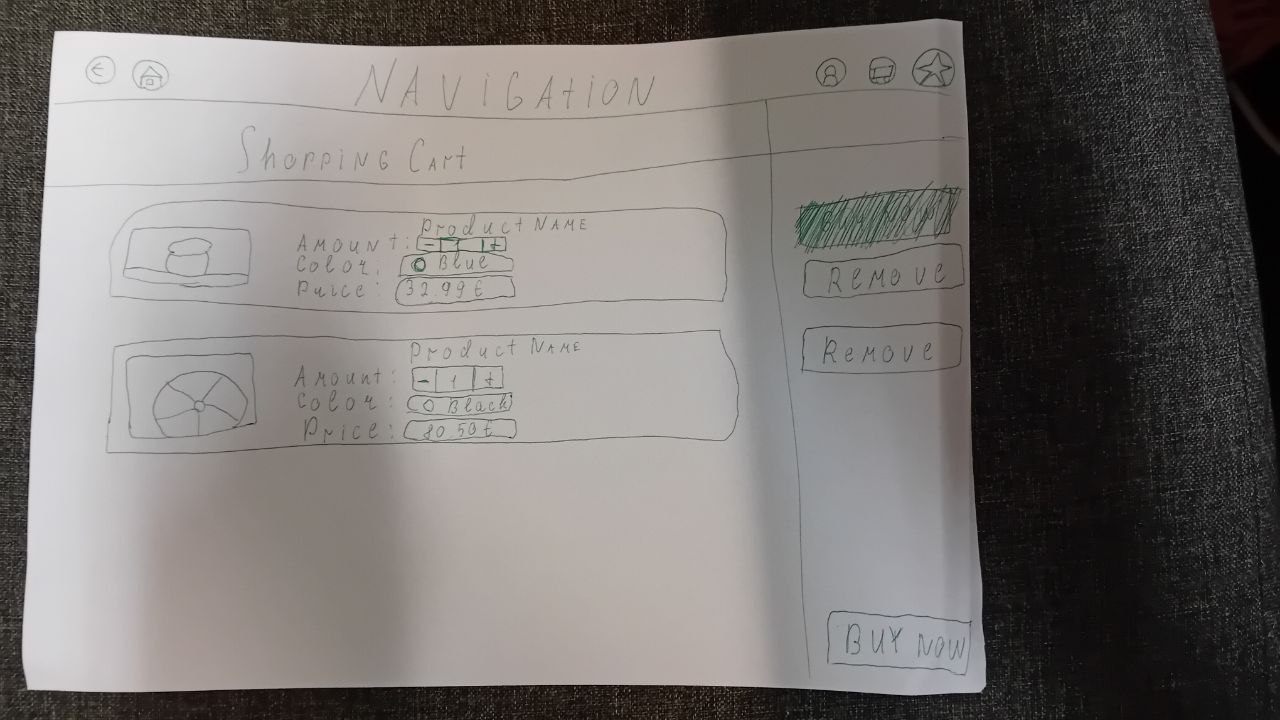 NAViGAtiON
Shopping Cart
Product NAME
Amount: - +
Color: Blue
Price: 32.99 €
Remove
Product NAME
Amount: - 1 +
Color: Black
Price: 80.50 €
Remove
BUY NOW